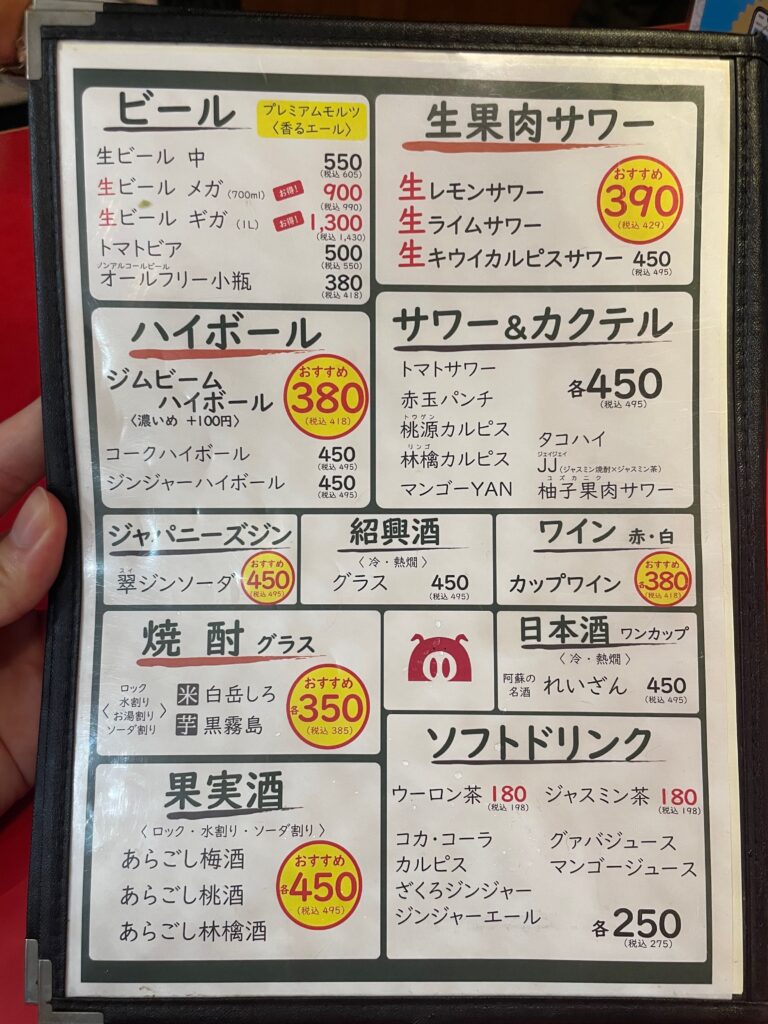 ビール
プレミアムモルツ
〈香るエール〉
生ビール 中 550
(税込 605)
生ビール メガ (700ml) お得! 900
(税込 990)
生ビール ギガ (1L) お得! 1,300
(税込 1,430)
トマトビア 500
(税込 550)
ノンアルコールビール
オールフリー小瓶 380
(税込 418)
生果肉サワー
生レモンサワー
生ライムサワー
おすすめ
390
(税込 429)
生キウイカルピスサワー 450
(税込 495)
ハイボール
ジムビーム
ハイボール
〈濃いめ +100円〉
おすすめ
380
(税込 418)
コークハイボール 450
(税込 495)
ジンジャーハイボール 450
(税込 495)
サワー&カクテル
トマトサワー
赤玉パンチ
トウゲン
桃源カルピス
リンゴ
林檎カルピス
マンゴーYAN
各450
(税込 495)
タコハイ
ジェイジェイ
JJ(ジャスミン焼酎×ジャスミン茶)
ユズカニク
柚子果肉サワー
ジャパニーズジン
スイ
翠ジンソーダ
おすすめ
450
(税込 495)
紹興酒
〈 冷・熱燗 〉
グラス 450
(税込 495)
ワイン 赤・白
カップワイン
おすすめ
各380
(税込 418)
焼酎 グラス
〈 ロック
水割り
お湯割り
ソーダ割り 〉
米 白岳しろ
芋 黒霧島
おすすめ
各350
(税込 385)
日本酒 ワンカップ
〈 冷・熱燗 〉
阿蘇の
名酒 れいざん 450
(税込 495)
果実酒
〈 ロック・水割り・ソーダ割り 〉
あらごし梅酒
あらごし桃酒
あらごし林檎酒
おすすめ
各450
(税込 495)
ソフトドリンク
ウーロン茶 180
(税込 198)
ジャスミン茶 180
(税込 198)
コカ・コーラ
カルピス
ざくろジンジャー
ジンジャーエール
グァバジュース
マンゴージュース
各250
(税込 275)